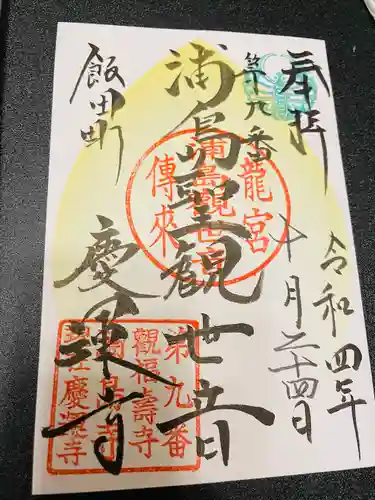 奉拝
第十九番
令和四年
十月二十四日
浦島聖観世音
飯田町
慶運寺
龍宮
浦島觀世音
傳來
第九番
觀福壽寺
慶運寺